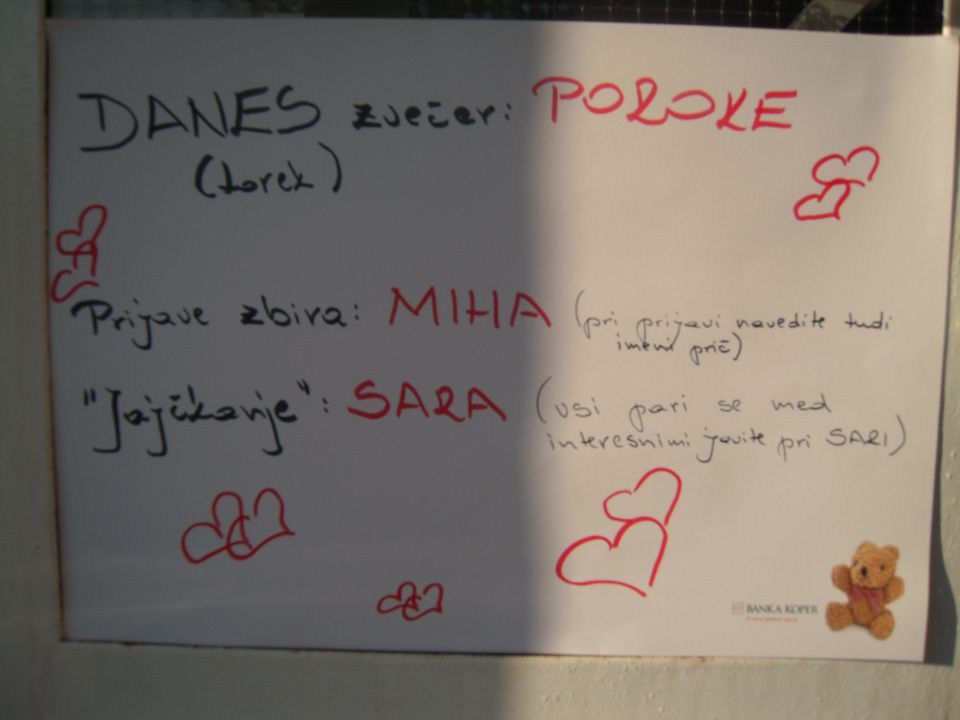 DANES zvečer: POROKE
(torek)
Prijave zbira: MIHA (pri prijavi navedite tudi
imeni prič)
"Jajčkanje": SARA (vsi pari se med
interesnimi javite pri SARI)
BANKA KOPER